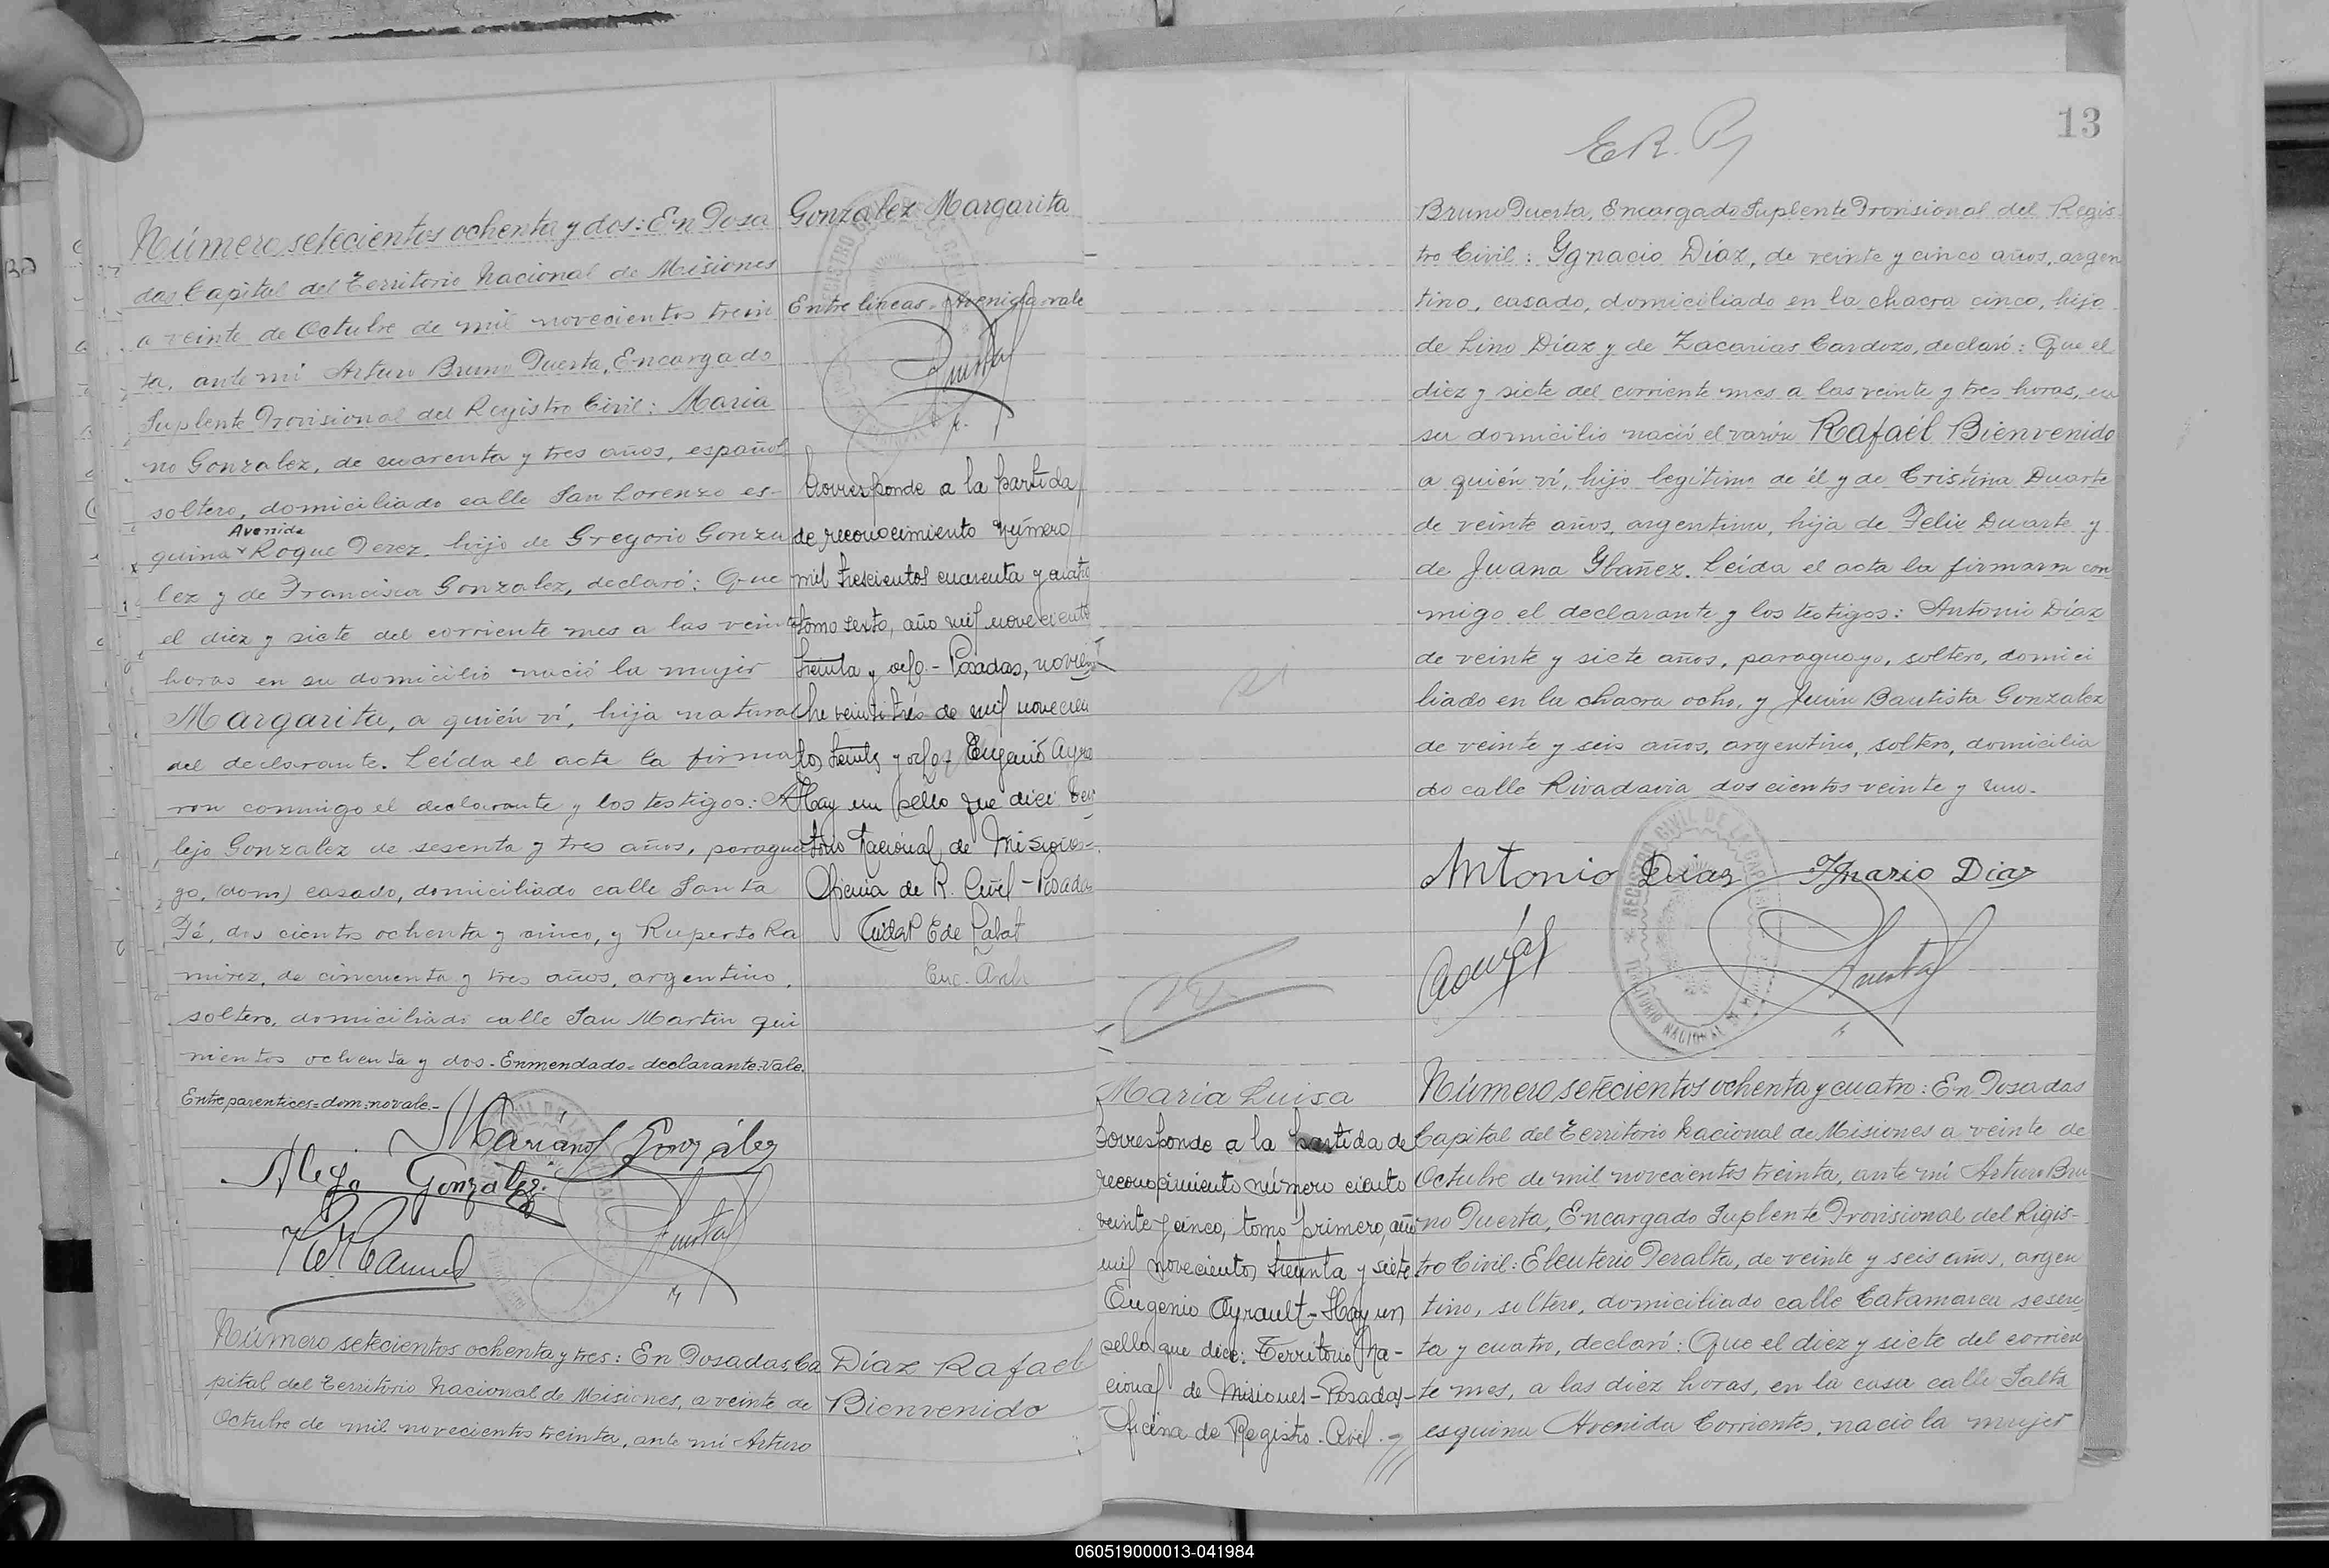 Número setecientos ochenta y dos: En Posa
das Capital del Territorio Nacional de Misiones
a veinte de Octubre de mil novecientos trein
ta, ante mi Arturo Bruno Puerta, Encargado
Suplente Provisional del Registro Civil: Maria
no Gonzalez, de cuarenta y tres años, español
soltero, domiciliado calle San Lorenzo es-
Avenida
quina Roque Perez, hijo de Gregorio Gonza
lez y de Francisca Gonzalez, declaró: Que
el diez y siete del corriente mes a las veinte
horas en su domicilio nació la mujer
Margarita, a quién ví, hija natural
del declarante. Leída el acta la firma
ron conmigo el declarante y los testigos: A
lejo Gonzalez de sesenta y tres años, paragua
yo, (dom) casado, domiciliado calle Santa
Fé, dos cientos ochenta y cinco, y Ruperto Ra
mirez, de cincuenta y tres años, argentino,
soltero, domiciliado calle San Martin qui
nientos ochenta y dos. Enmendado=declarante=Vale.
Entre parentices=dom=no vale.-
Mariano González
Alejo Gonzalez
Gonzalez Margarita
Entre lineas=Avenida=vale
Corresponde a la partida
de reconocimiento número
mil trescientos cuarenta y cuatro
tomo sexto, año mil novecientos
treinta y ocho.- Posadas, noviem
bre veintitrés de mil novecien
tos treinta y ocho- Eugenio Ayra
Hay un sello que dice Terri
torio Nacional de Misiones-
Oficina de R. Civil - Posadas
Número setecientos ochenta y tres: En Posadas, Ca
pital del Territorio Nacional de Misiones, a veinte de
Octubre de mil novecientos treinta, ante mi Arturo
Díaz Rafael
Bienvenido
13
E.R.P.
Bruno Puerta, Encargado Suplente Provisional del Regis
tro Civil: Ygnacio Díaz, de veinte y cinco años, argen
tino, casado, domiciliado en la chacra cinco, hijo
de Lino Díaz y de Zacarias Cardozo, declaró: Que el
diez y siete del corriente mes a las veinte y tres horas, en
su domicilio nació el varón Rafaél Bienvenido
a quién ví, hijo legítimo de él y de Cristina Duarte
de veinte años, argentina, hija de Felix Duarte y
de Juana Ybañez. Leída el acta la firmaron con
migo el declarante y los testigos: Antonio Díaz
de veinte y siete años, paraguayo, soltero, domici
liado en la chacra ocho, y Juan Bautista Gonzalez
de veinte y seis años, argentino, soltero, domicilia
do calle Rivadavia dos cientos veinte y uno.
Antonio Dias Ygnasio Diaz
REGISTRO CIVIL DE LA CAPITAL
TERRITORIO NACIONAL DE M
Maria Luisa
Corresponde a la partida de
reconocimiento número ciento
veinte y cinco, tomo primero, año
mil novecientos treinta y siete
Eugenio Ayrault - Hay un
sello que dice: Territorio Na-
cional de Misiones - Posadas-
Oficina de Registro Civil.
Número setecientos ochenta y cuatro: En Posadas
Capital del Territorio Nacional de Misiones a veinte de
Octubre de mil novecientos treinta, ante mi Arturo Bru
no Puerta, Encargado Suplente Provisional del Rigis-
tro Civil: Eleuterio Peralta, de veinte y seis años, argen
tino, soltero, domiciliado calle Catamarca sesen
ta y cuatro, declaró: Que el diez y siete del corrien
te mes, a las diez horas, en la casa calle Salta
esquina Avenida Corrientes, nacio la mujer
060519000013-041984